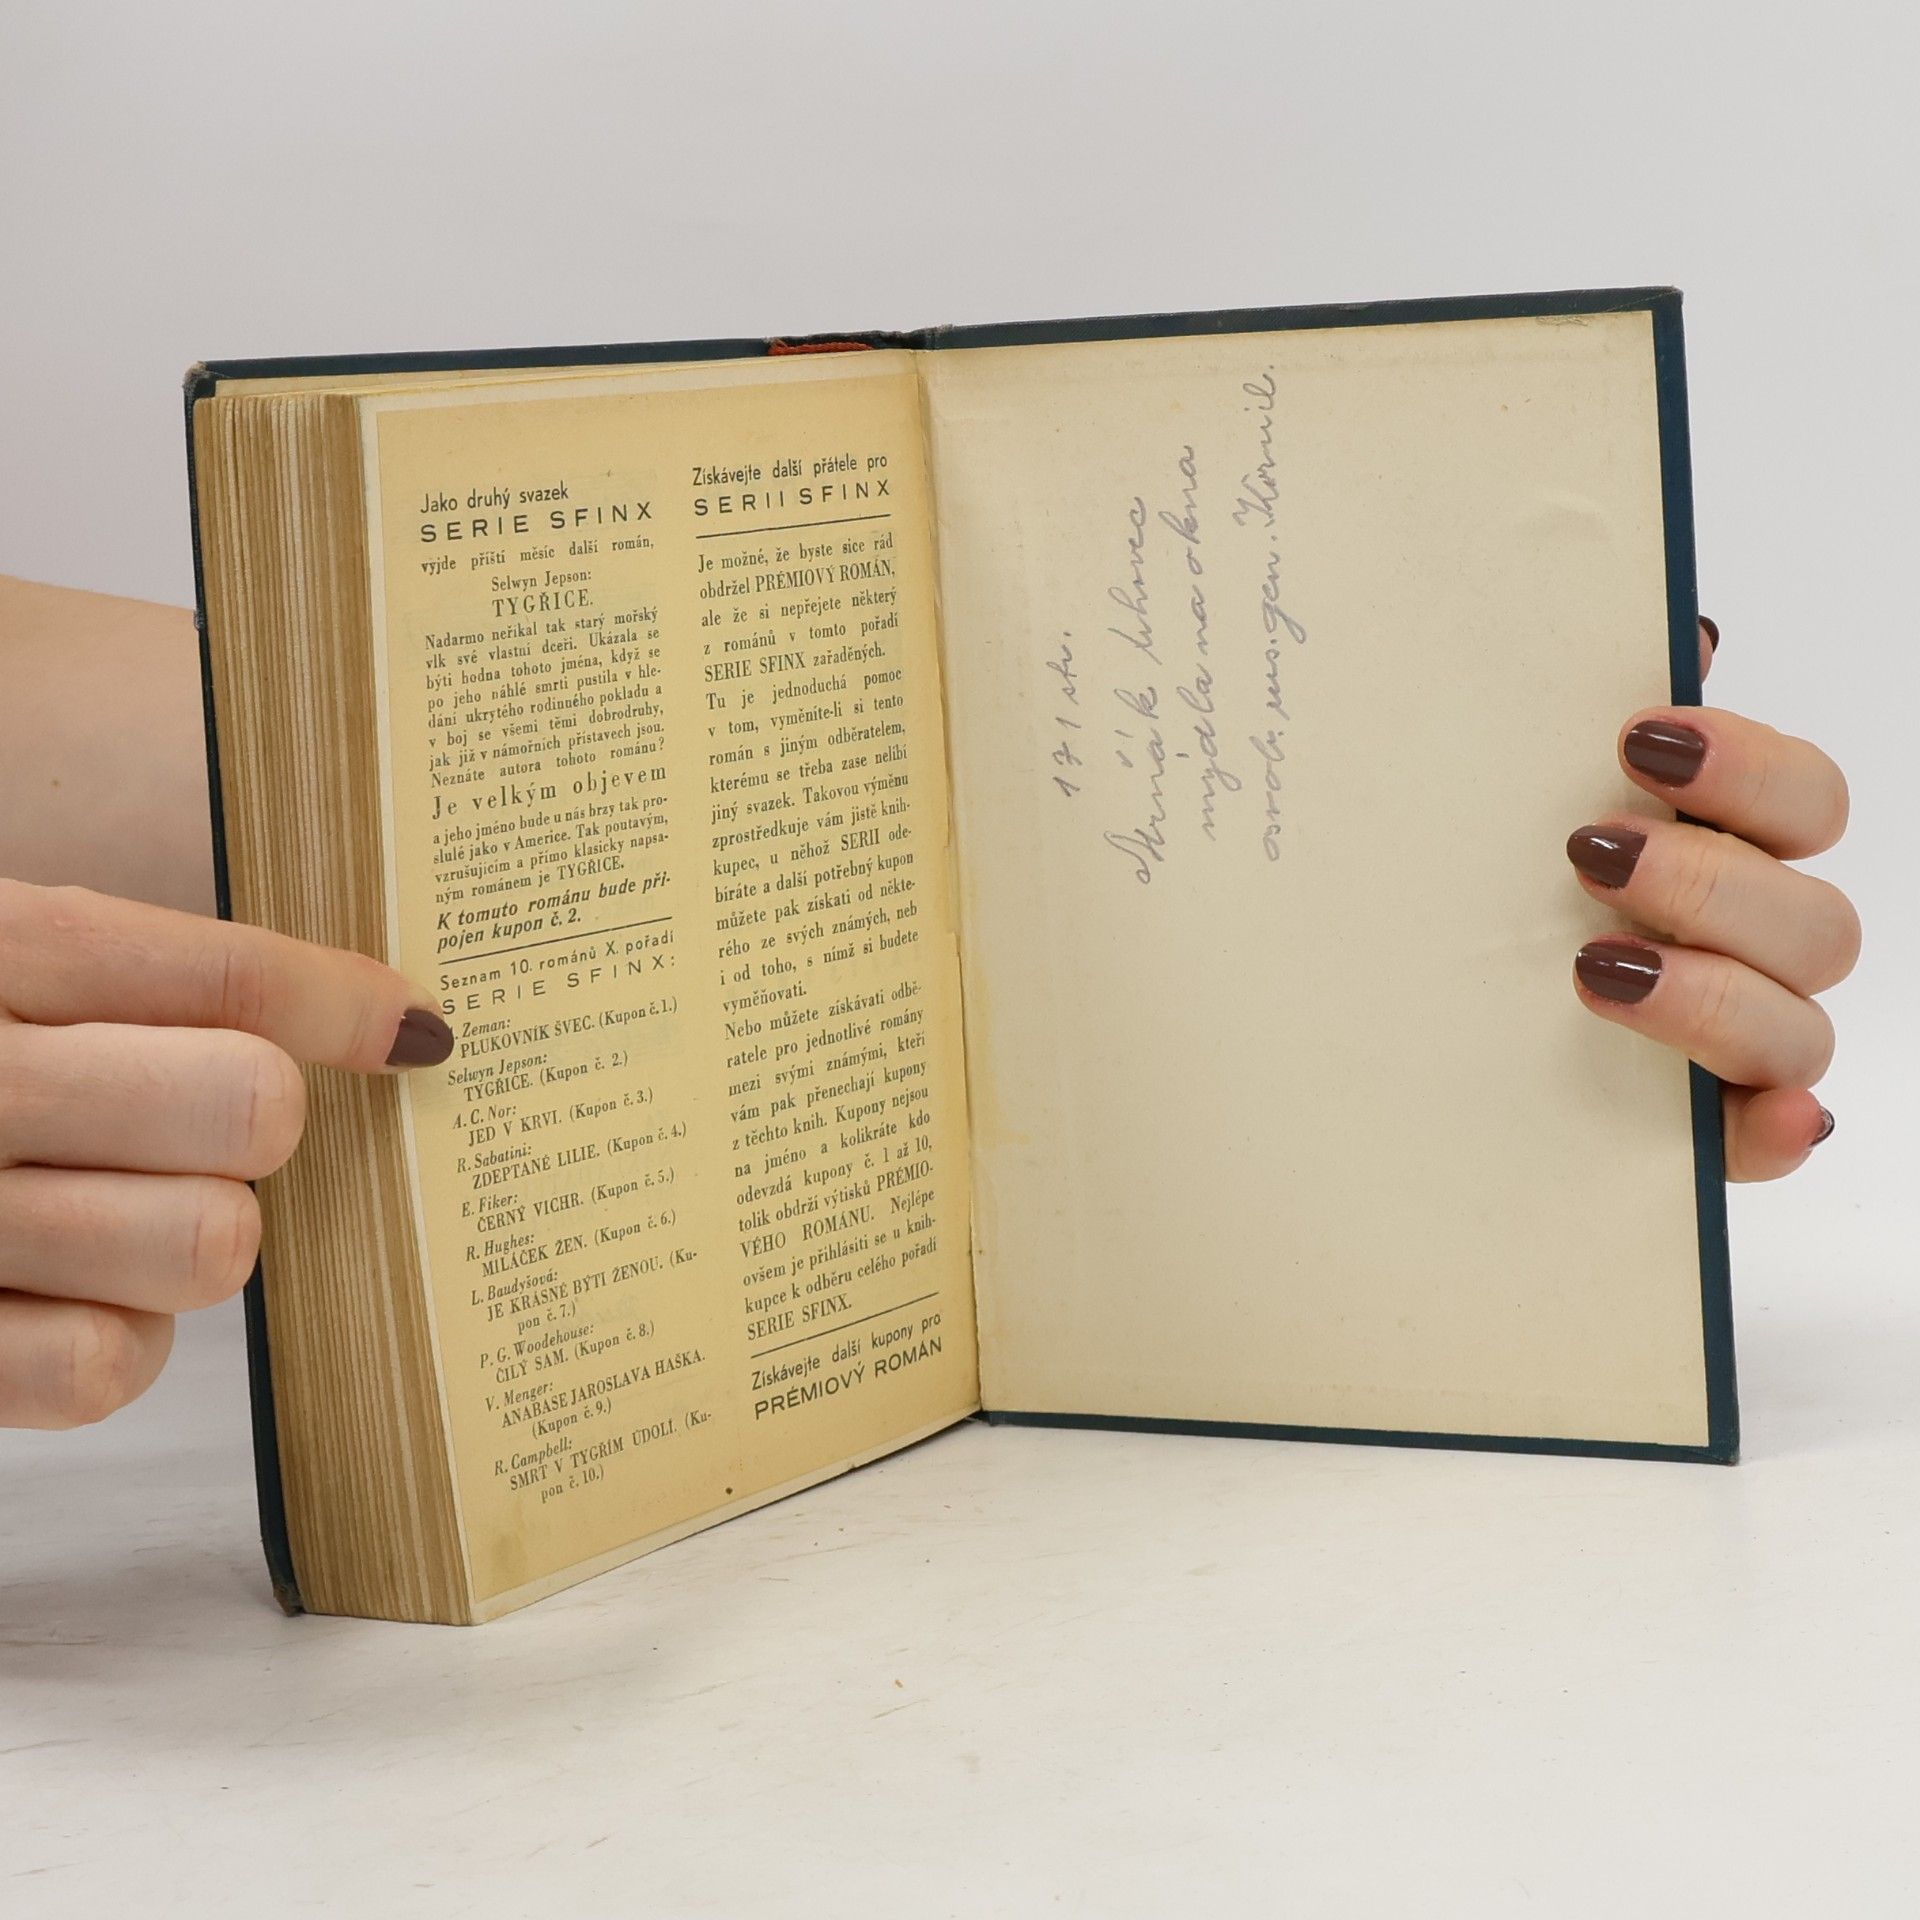 Jako druhý svazek
SERIE SFINX
vyjde příští měsíc další román,
Selwyn Jepson:
TYGŘICE.
Nadarmo neříkal tak starý mořský
vlk své vlastní dceři. Ukázala se
býti hodna tohoto jména, když se
po jeho náhlé smrti pustila v hle-
dání ukrytého rodinného pokladu a
v boj se všemi těmi dobrodruhy,
jak již v námořních přístavech jsou.
Neznáte autora tohoto románu?
Je velkým objevem
a jeho jméno bude u nás brzy tak pro-
slulé jako v Americe. Tak poutavým,
vzrušujícím a přímo klasicky napsa-
ným románem je TYGŘICE.
K tomuto románu bude při-
pojen kupon č. 2.
Seznam 10. románů X. pořadí
SERIE SFINX:
Zeman:
PLUKOVNÍK ŠVEC. (Kupon č. 1.)
Selwyn Jepson:
TYGŘICE. (Kupon č. 2.)
A. C. Nor:
JED V KRVI. (Kupon č. 3.)
R. Sabatini:
ZDEPTANÉ LILIE. (Kupon č. 4.)
E. Fiker:
ČERNÝ VICHR. (Kupon č. 5.)
R. Hughes:
MILÁČEK ŽEN. (Kupon č. 6.)
L. Baudyšová:
JE KRÁSNÉ BÝTI ŽENOU. (Ku-
pon č. 7.)
P. G. Woodehouse:
ČILÝ SAM. (Kupon č. 8.)
V. Menger:
ANABASE JAROSLAVA HAŠKA.
(Kupon č. 9.)
R. Campbell:
SMRT V TYGŘÍM ÚDOLÍ. (Ku-
pon č. 10.)
Získávejte další přátele pro
SERII SFINX
Je možné, že byste sice rád
obdržel PRÉMIOVÝ ROMÁN,
ale že si nepřejete některý
z románů v tomto pořadí
SERIE SFINX zařaděných.
Tu je jednoduchá pomoc
v tom, vyměníte-li si tento
román s jiným odběratelem,
kterému se třeba zase nelíbí
jiný svazek. Takovou výměnu
zprostředkuje vám jistě knih-
kupec, u něhož SERII ode-
bíráte a další potřebný kupon
můžete pak získati od někte-
rého ze svých známých, neb
i od toho, s nímž si budete
vyměňovati.
Nebo můžete získávati odbě-
ratele pro jednotlivé romány
mezi svými známými, kteří
vám pak přenechají kupony
z těchto knih. Kupony nejsou
na jméno a kolikráte kdo
odevzdá kupony č. 1 až 10,
tolik obdrží výtisků PRÉMIO-
VÉHO ROMÁNU. Nejlépe
ovšem je přihlásiti se u knih-
kupce k odběru celého pořadí
SERIE SFINX.
Získávejte další kupony pro
PRÉMIOVÝ ROMÁN
171 str.
mýdla na okna